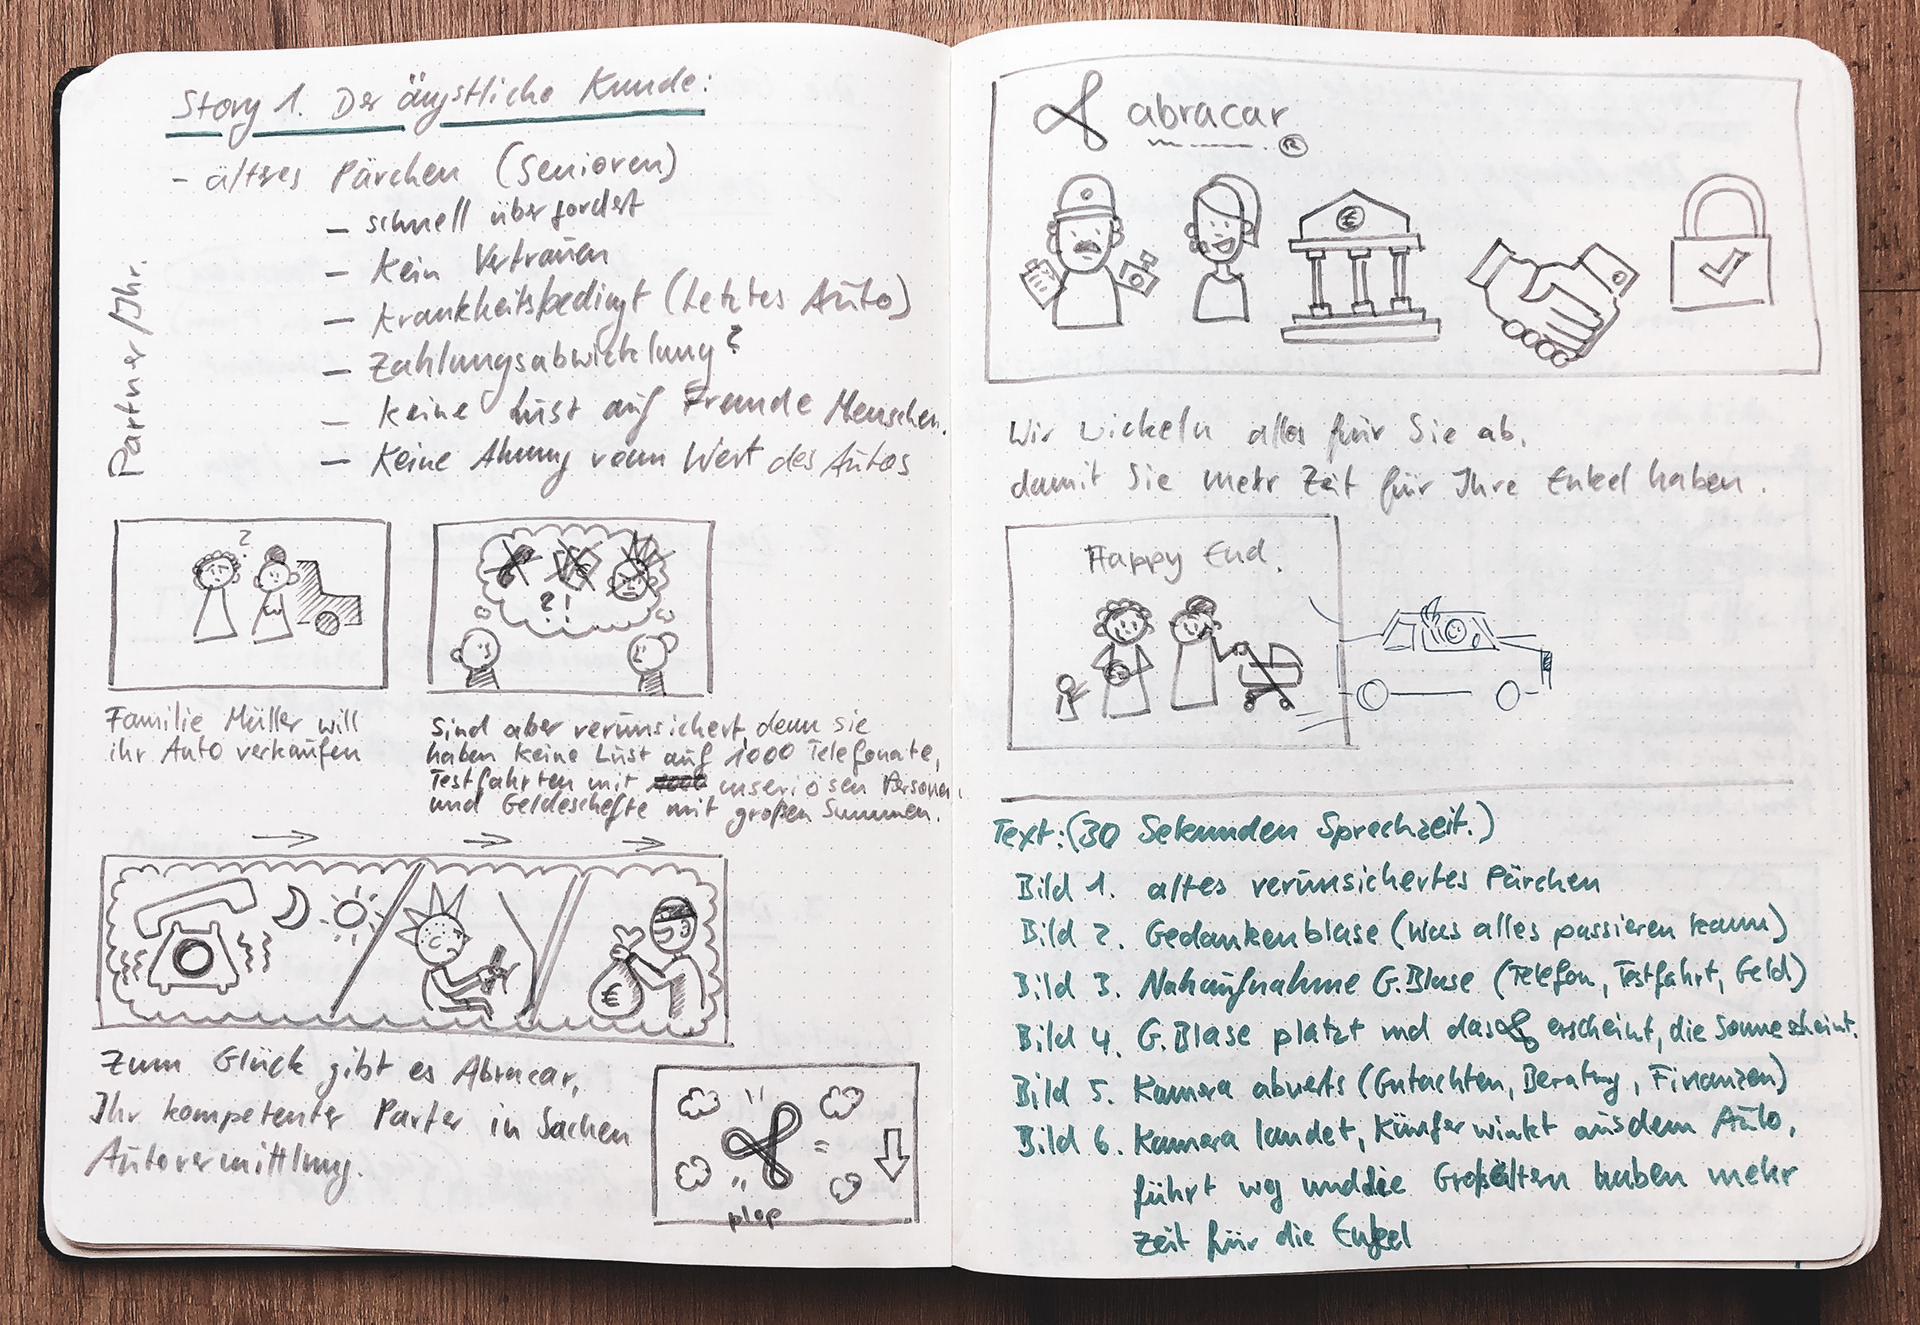 Story 1. Der ängstliche Kunde:
- älteres Pärchen (Senioren)
- schnell überfordert
- Kein Vertrauen
- Krankheitsbedingt (Letztes Auto)
- Zahlungsabwicklung?
- Keine Lust auf Fremde Menschen.
- Keine Ahnung vom Wert des Autos
Partner/Ihr.
?
?!
Familie Müller will
ihr Auto verkaufen
Sind aber verunsichert, denn sie
haben keine Lust auf 1000 Telefonate,
Testfahrten mit unseriösen Personen
und Geldeschefte mit großen Summen.
€
Zum Glück gibt es Abracar,
Ihr kompetenter Parter in Sachen
Autovermittlung.
plop
abracar
®
€
Wir wickeln alles für Sie ab,
damit Sie mehr Zeit für Ihre Enkel haben.
Happy End.
Text: (30 Sekunden Sprechzeit.)
Bild 1. altes verunsichertes Pärchen
Bild 2. Gedankenblase (Was alles passieren kann)
Bild 3. Nahaufnahme G.Blase (Telefon, Testfahrt, Geld)
Bild 4. G.Blase platzt und das erscheint, die Sonne scheint.
Bild 5. Kamera abwerts (Gutachten, Beratung, Finanzen)
Bild 6. Kamera landet, Käufer winkt aus dem Auto,
führt weg und die Großeltern haben mehr
Zeit für die Enkel